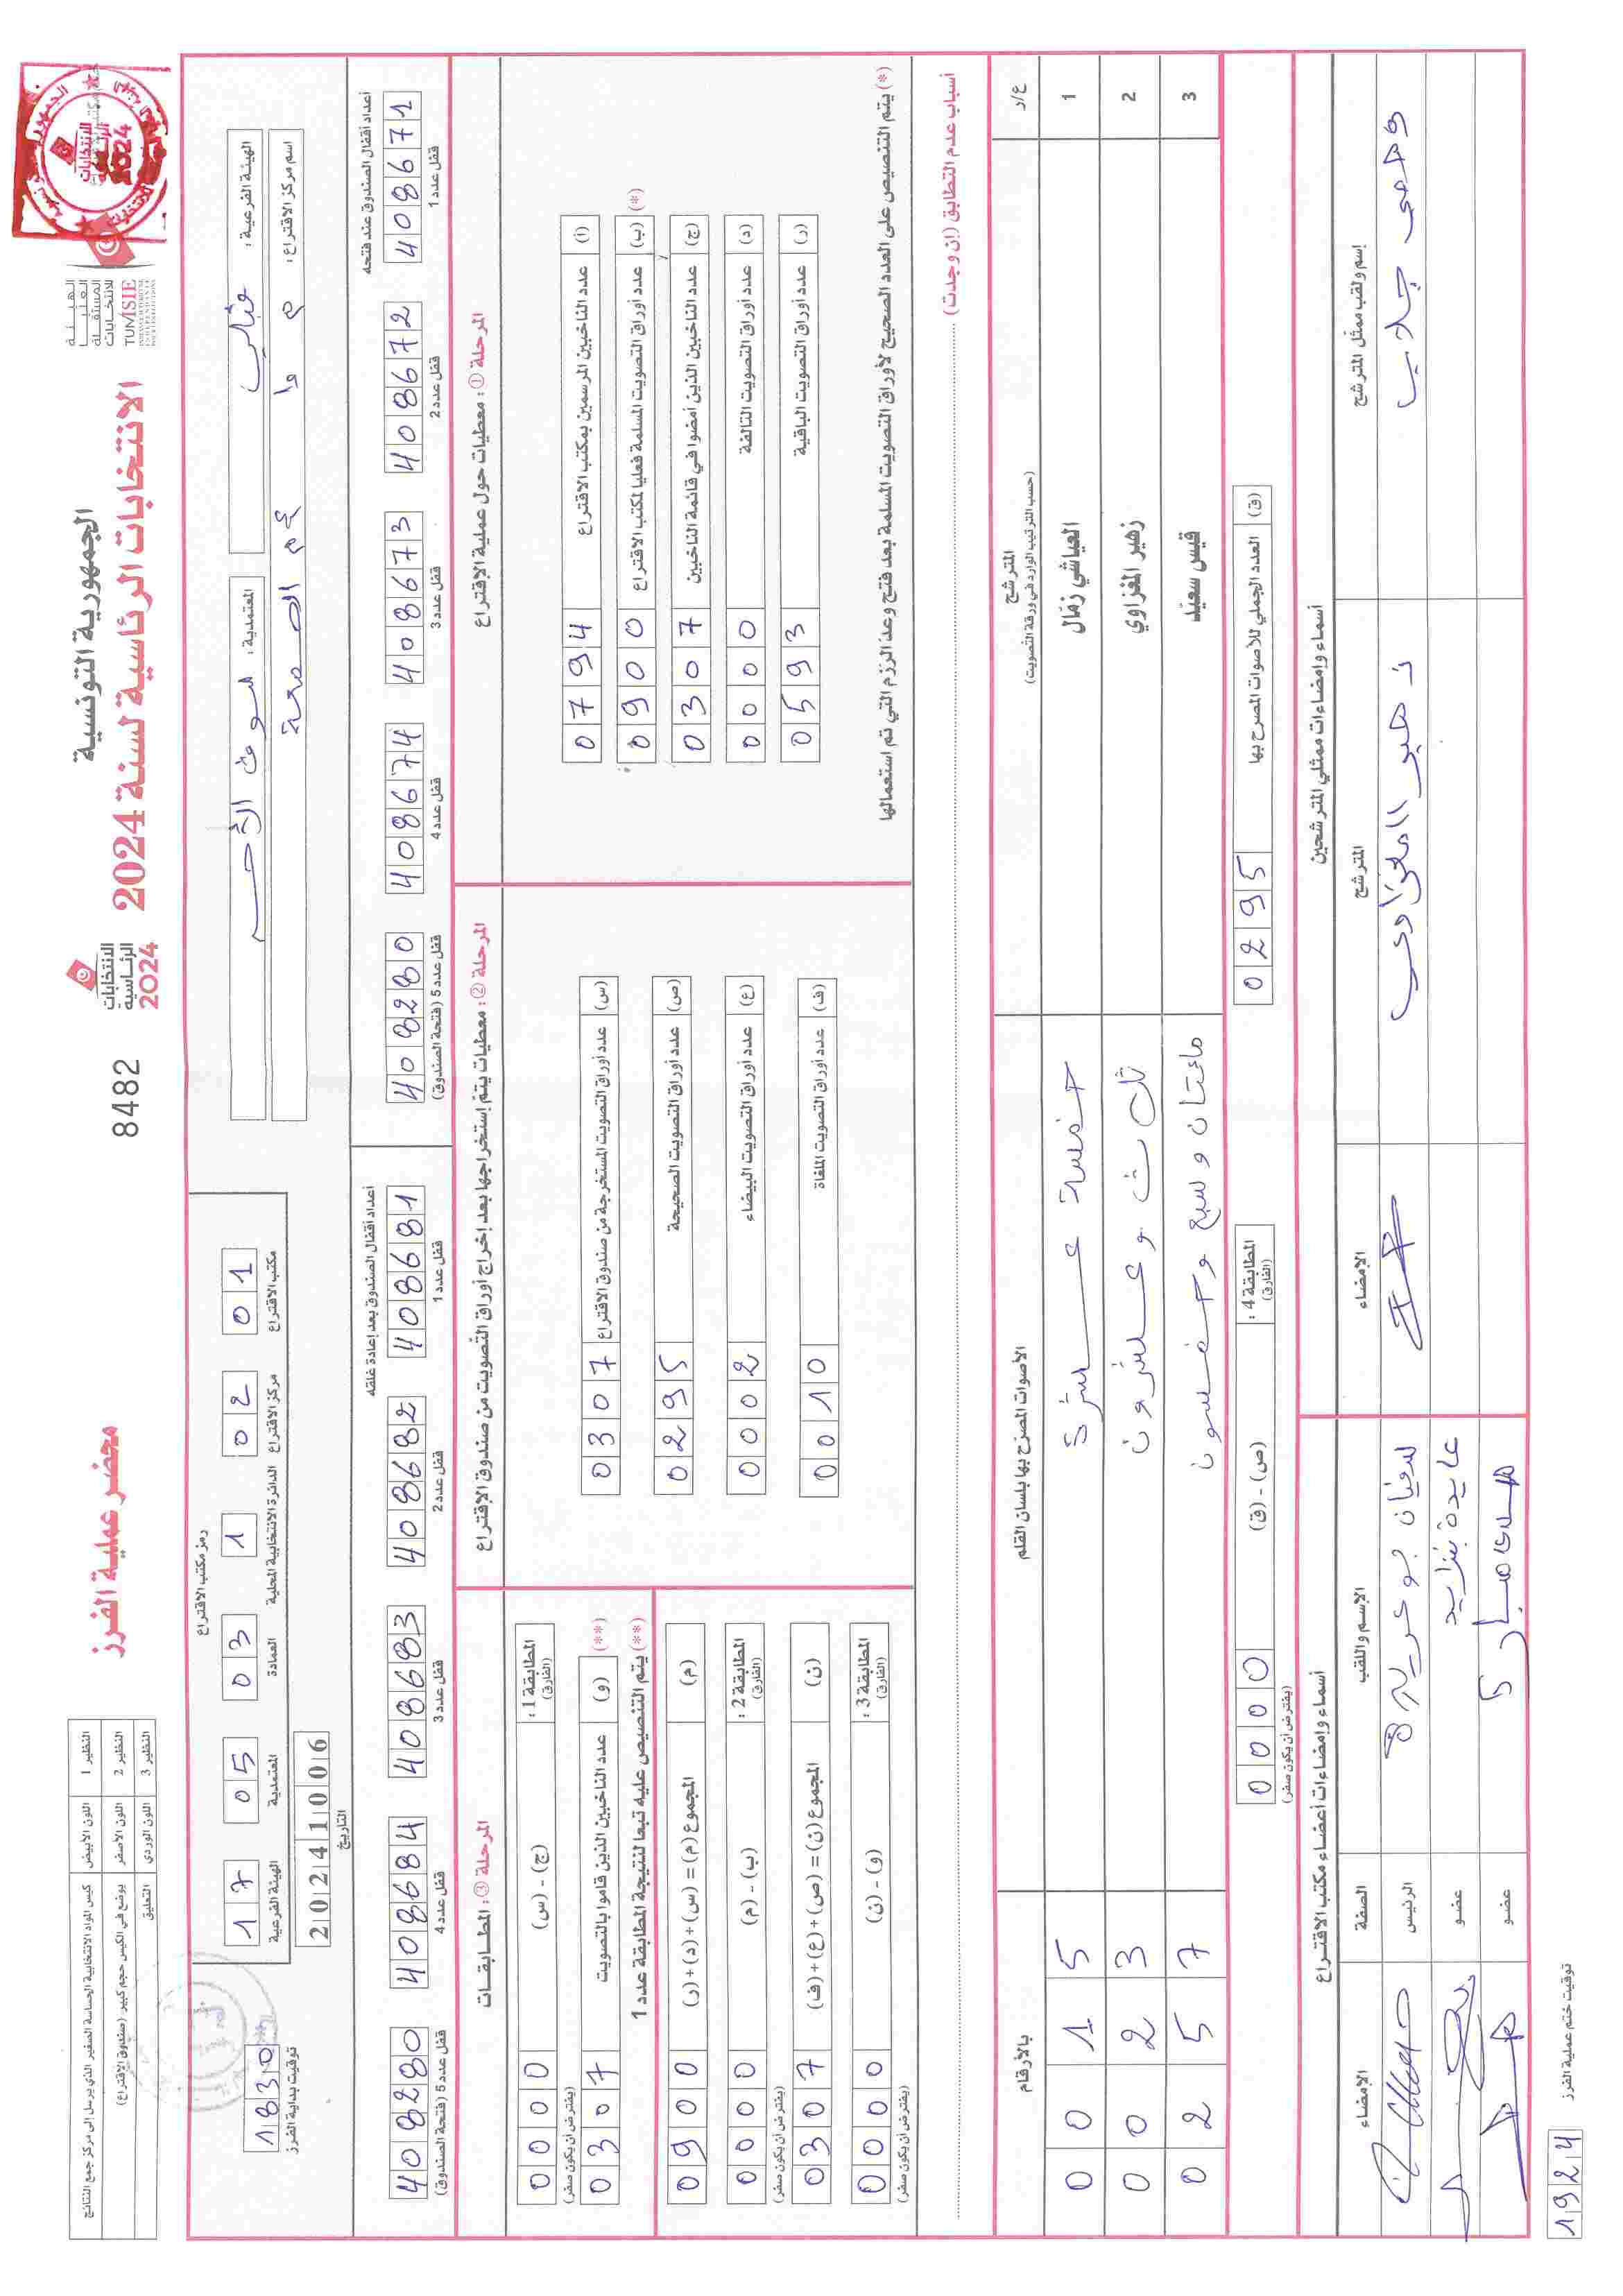 الجمهورية التونسية
الانتخابات الرئاسية لسنة 2024
الهيئة العليا المستقلة للانتخابات
TUNISIE
الانتخابات الرئاسية 2024
8482
محضر عملية الفرز
النظير 1 اللون الأبيض كيس المواد الانتخابية الحساسة الصغير الذي يرسل إلى مركز جمع النتائج
النظير 2 اللون الأصفر يوضع في الكيس حجم كبير (صندوق الاقتراع)
النظير 3 اللون الوردي التعليق
الهيئة الفرعية : قابس
المعتمدية :
اسم مركز الاقتراع :
رمز مكتب الاقتراع
17 05 03 1 02 01
الهيئة الفرعية المعتمدية العمادة الدائرة الانتخابية المحلية مركز الاقتراع مكتب الاقتراع
20241006
التاريخ
1830
توقيت بداية الفرز
أعداد أقفال الصندوق عند فتحه
408671 408672 408673 408674 408280
قفل عدد 1 قفل عدد 2 قفل عدد 3 قفل عدد 4 قفل عدد 5 (فتحة الصندوق)
أعداد أقفال الصندوق بعد إعادة غلقه
408681 408682 408683 408684 408280
قفل عدد 1 قفل عدد 2 قفل عدد 3 قفل عدد 4 قفل عدد 5 (فتحة الصندوق)
المرحلة ① : معطيات حول عملية الإقتراع
(أ) عدد الناخبين المرسمين بمكتب الاقتراع 0794
(ب) عدد أوراق التصويت المسلمة فعليا لمكتب الاقتراع 0900 (*)
(ج) عدد الناخبين الذين أمضوا في قائمة الناخبين 0307
(د) عدد أوراق التصويت التالفة 0000
(ر) عدد أوراق التصويت الباقية 0593
(*) يتم التنصيص على العدد الصحيح لأوراق التصويت المسلمة بعد فتح وعد الرزم التي تم استعمالها
المرحلة ② : معطيات يتم إستخراجها بعد إخراج أوراق التصويت من صندوق الإقتراع
(س) عدد أوراق التصويت المستخرجة من صندوق الاقتراع 0307
(ص) عدد أوراق التصويت الصحيحة 0295
(ع) عدد أوراق التصويت البيضاء 0002
(ف) عدد أوراق التصويت الملغاة 0010
المرحلة ③ : المطابقات
المطابقة 1 : (الفارق) (ج) - (س) 0000
(يفترض أن يكون صفر)
(**) (و) عدد الناخبين الذين قاموا بالتصويت 0307
(**) يتم التنصيص عليه تبعا لنتيجة المطابقة عدد 1
(م) المجموع (م) = (س) + (د) + (ر) 0900
المطابقة 2 : (الفارق) (ب) - (م) 0000
(يفترض أن يكون صفر)
(ن) المجموع (ن) = (ص) + (ع) + (ف) 0307
المطابقة 3 : (الفارق) (و) - (ن) 0000
(يفترض أن يكون صفر)
أسباب عدم التطابق (إن وجدت)
ع/ر المترشح (حسب الترتيب الوارد في ورقة التصويت) الأصوات المصرح بها بلسان القلم بالأرقام
1 العياشي زمال خمسة عشرة 0015
2 زهير المغزاوي ثلاث وعشرون 0023
3 قيس سعيد مائتان وسبع وخمسون 0257
(ق) العدد الجملي للأصوات المصرح بها 0295
المطابقة 4 : (الفارق) (ص) - (ق) 0000
(يفترض أن يكون صفر)
أسماء وإمضاءات ممثلي المترشحين
إسم ولقب ممثل المترشح المترشح الإمضاء
زهير المغزاوي
أسماء وإمضاءات أعضاء مكتب الاقتراع
الإسم واللقب الصفة الإمضاء
الرئيس
عضو
عضو
توقيت ختم عملية الفرز
1924